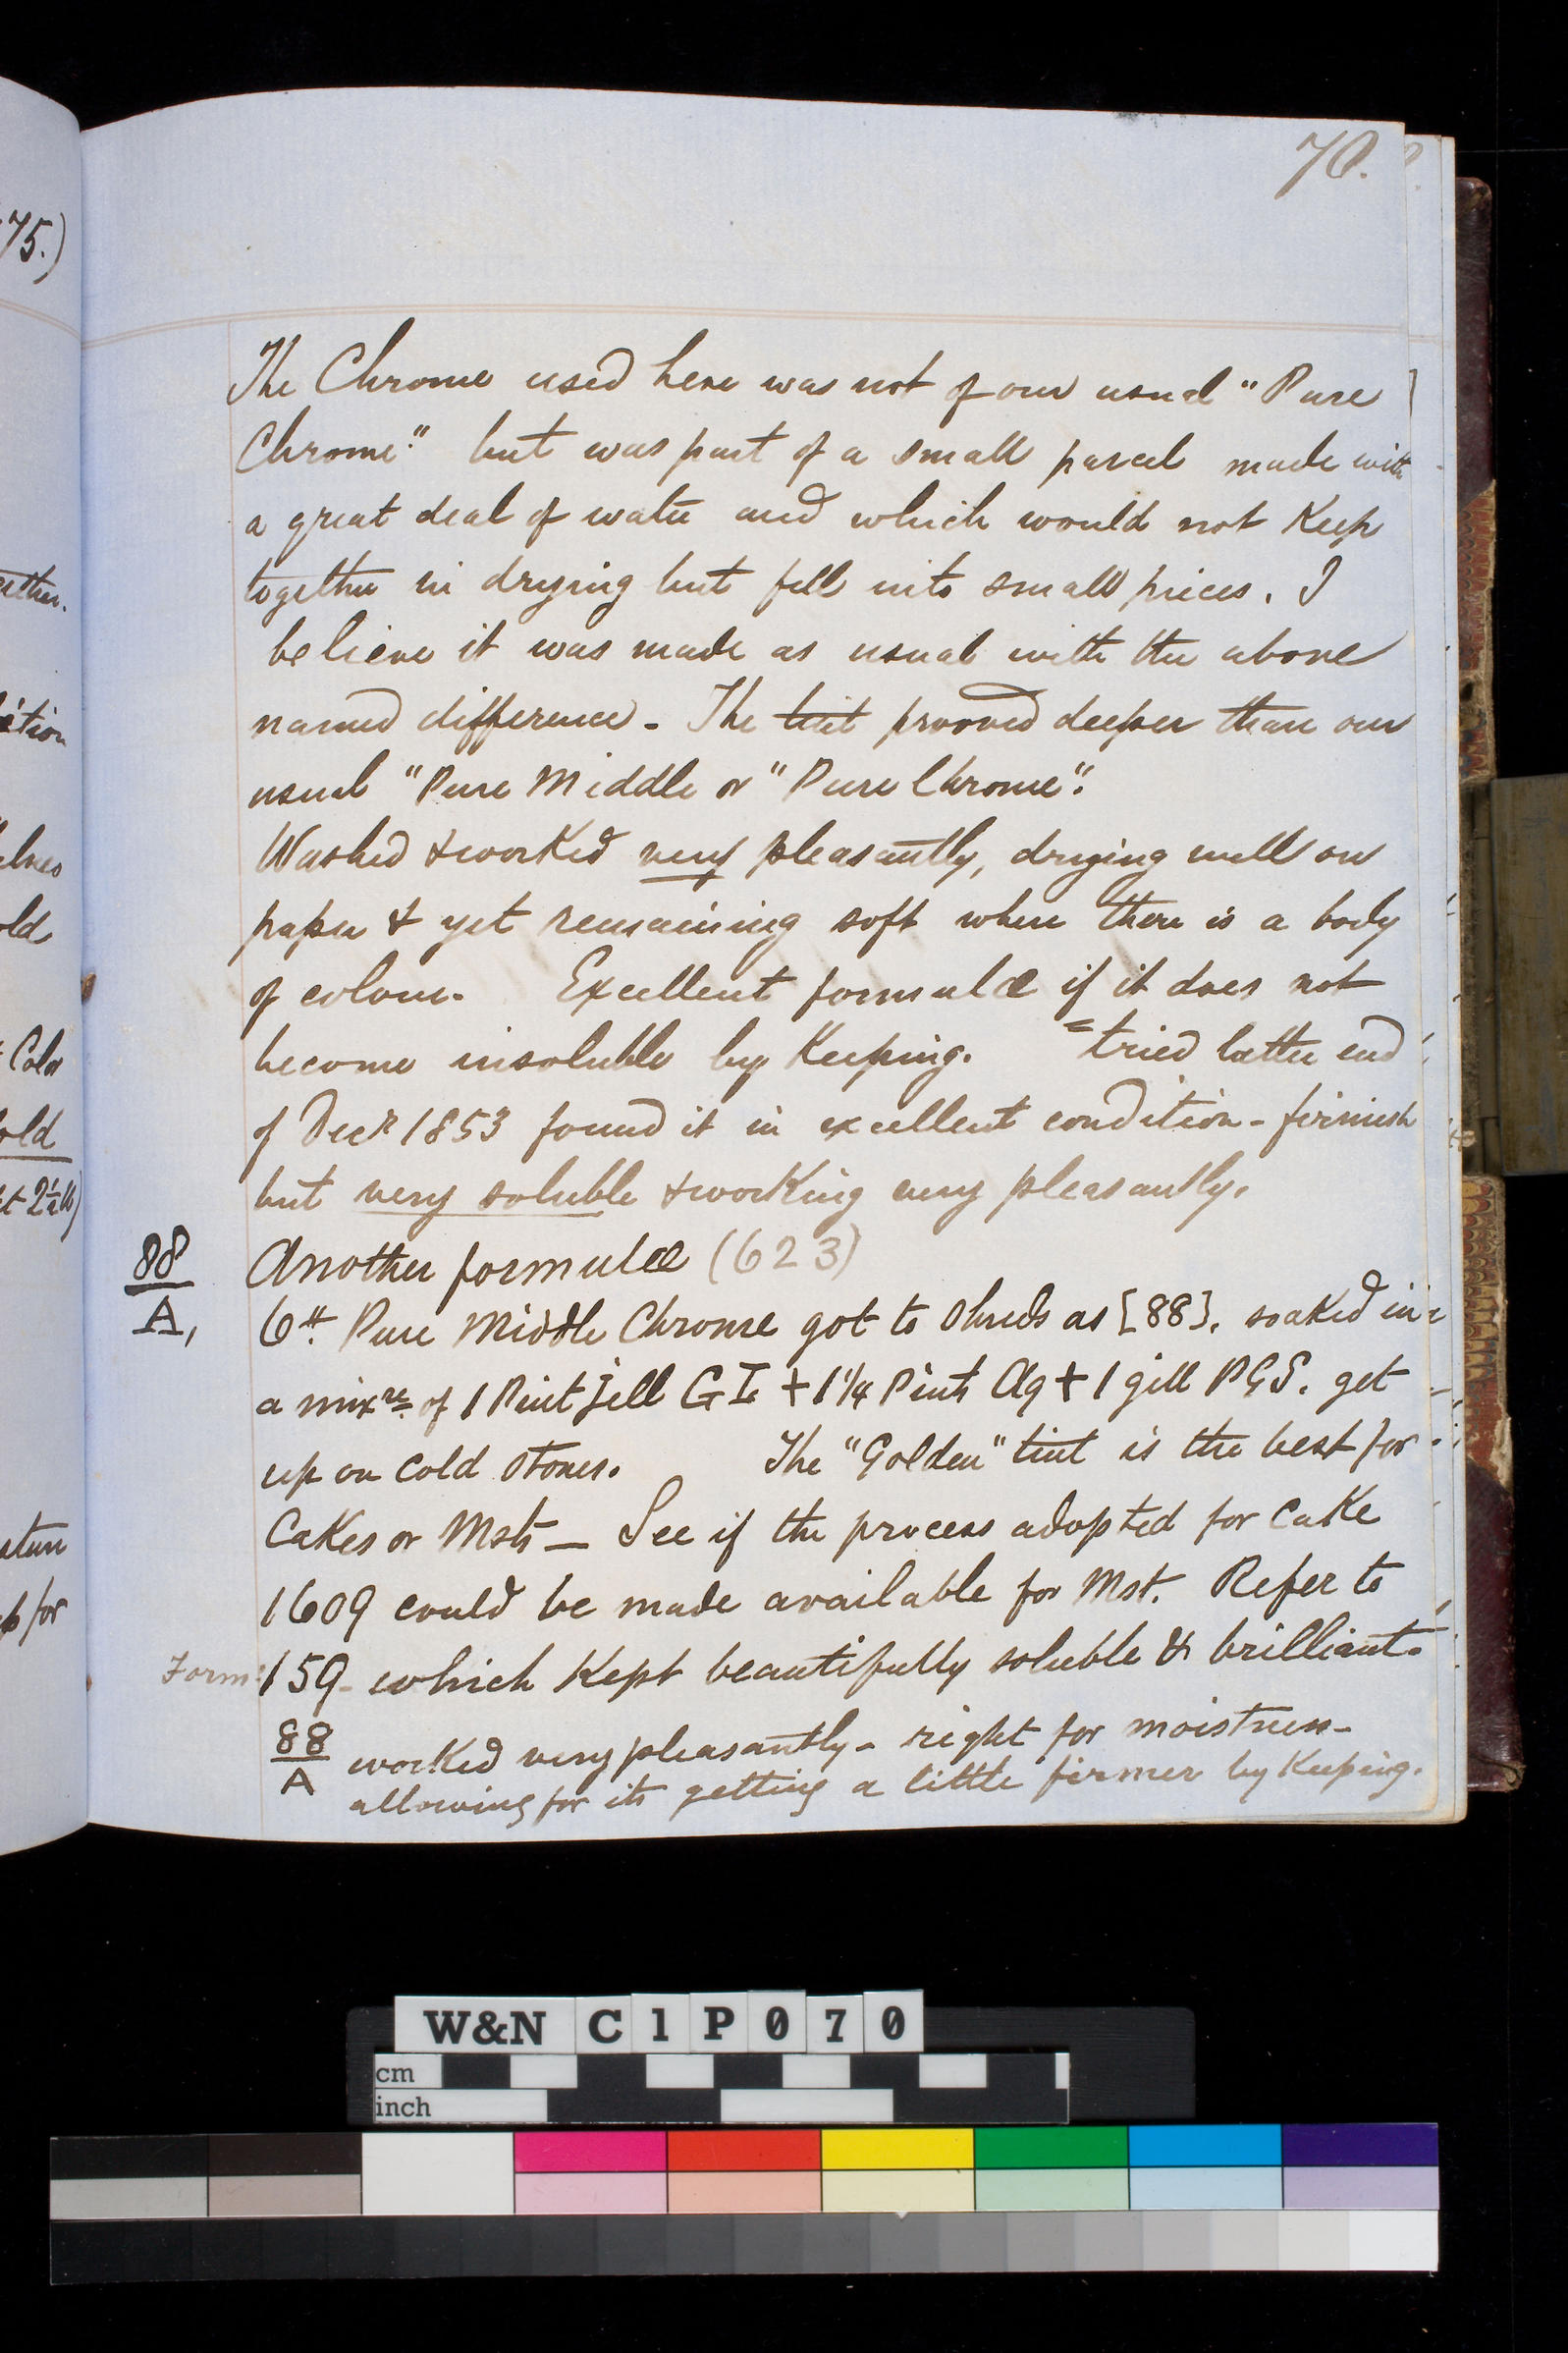 70.
75.)
The Chrome used here was not of our usual "Pure
Chrome" but was part of a small parcel made with
a great deal of water and which would not Keep
together in drying but fell into small pieces. I
believe it was made as usual with the above
named difference - The tint prooved deeper than our
usual "Pure Middle or "Pure Chrome".
Washed & worked very pleasantly, drying well on
paper & yet remaining soft where there is a body
of colour. Excellent formulæ if it does not
become insoluble by Keeping. = tried latter end
of Decr 1853 found it in excellent condition - firmish
but very soluble & working very pleasantly.
88/A, Another formulæ (623)
6 Pure Middle Chrome got to shreds as [88]. soaked in
a mixre of 1 Pint Jell G I + 1 1/4 Pints Aq + 1 gill PGS. get
up on cold stones. The "Golden" tint is the best for
Cakes or Msts — See if the process adopted for Cake
1609 could be made available for Mst. Refer to
Form: 159 - which Kept beautifully soluble & brilliant.
88/A worked very pleasantly - right for moistness -
allowing for its getting a little firmer by Keeping.
W&N C1P070
cm
inch